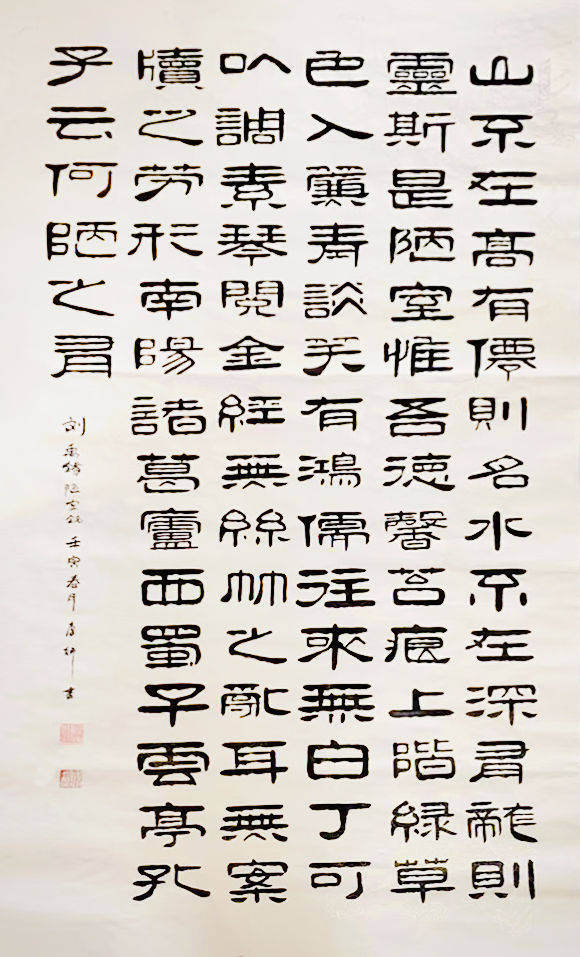 山不在髙有僊則名水不在深有龍則
靈斯是陋室惟吾德馨苔痕上階緑草
色入簾青談笑有鴻儒往來無白丁可
以調素琴閱金經無絲竹之亂耳無案
牘之勞形南陽諸葛廬西蜀子雲亭孔
子云何陋之有
刘禹锡陋室铭 壬寅春月 書